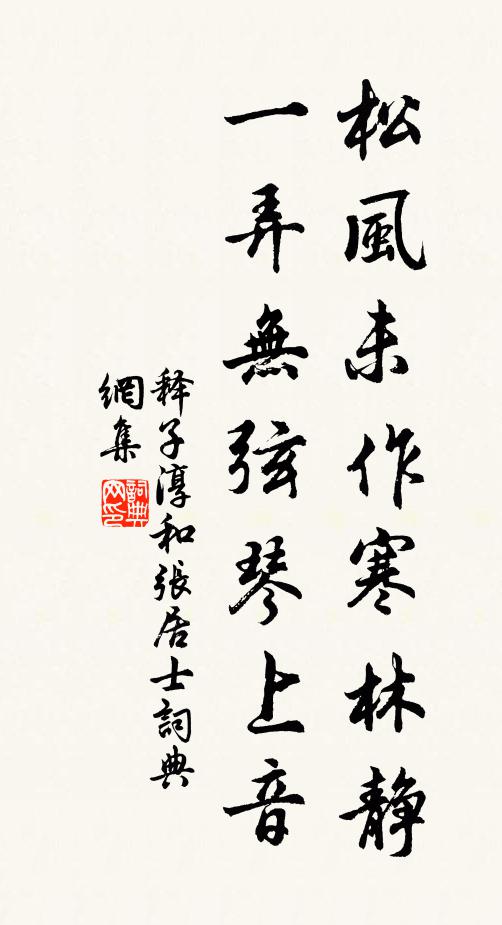 松風未作寒林静
一弄無弦琴上音
释子淳和張居士詞典
網集
詞典网印